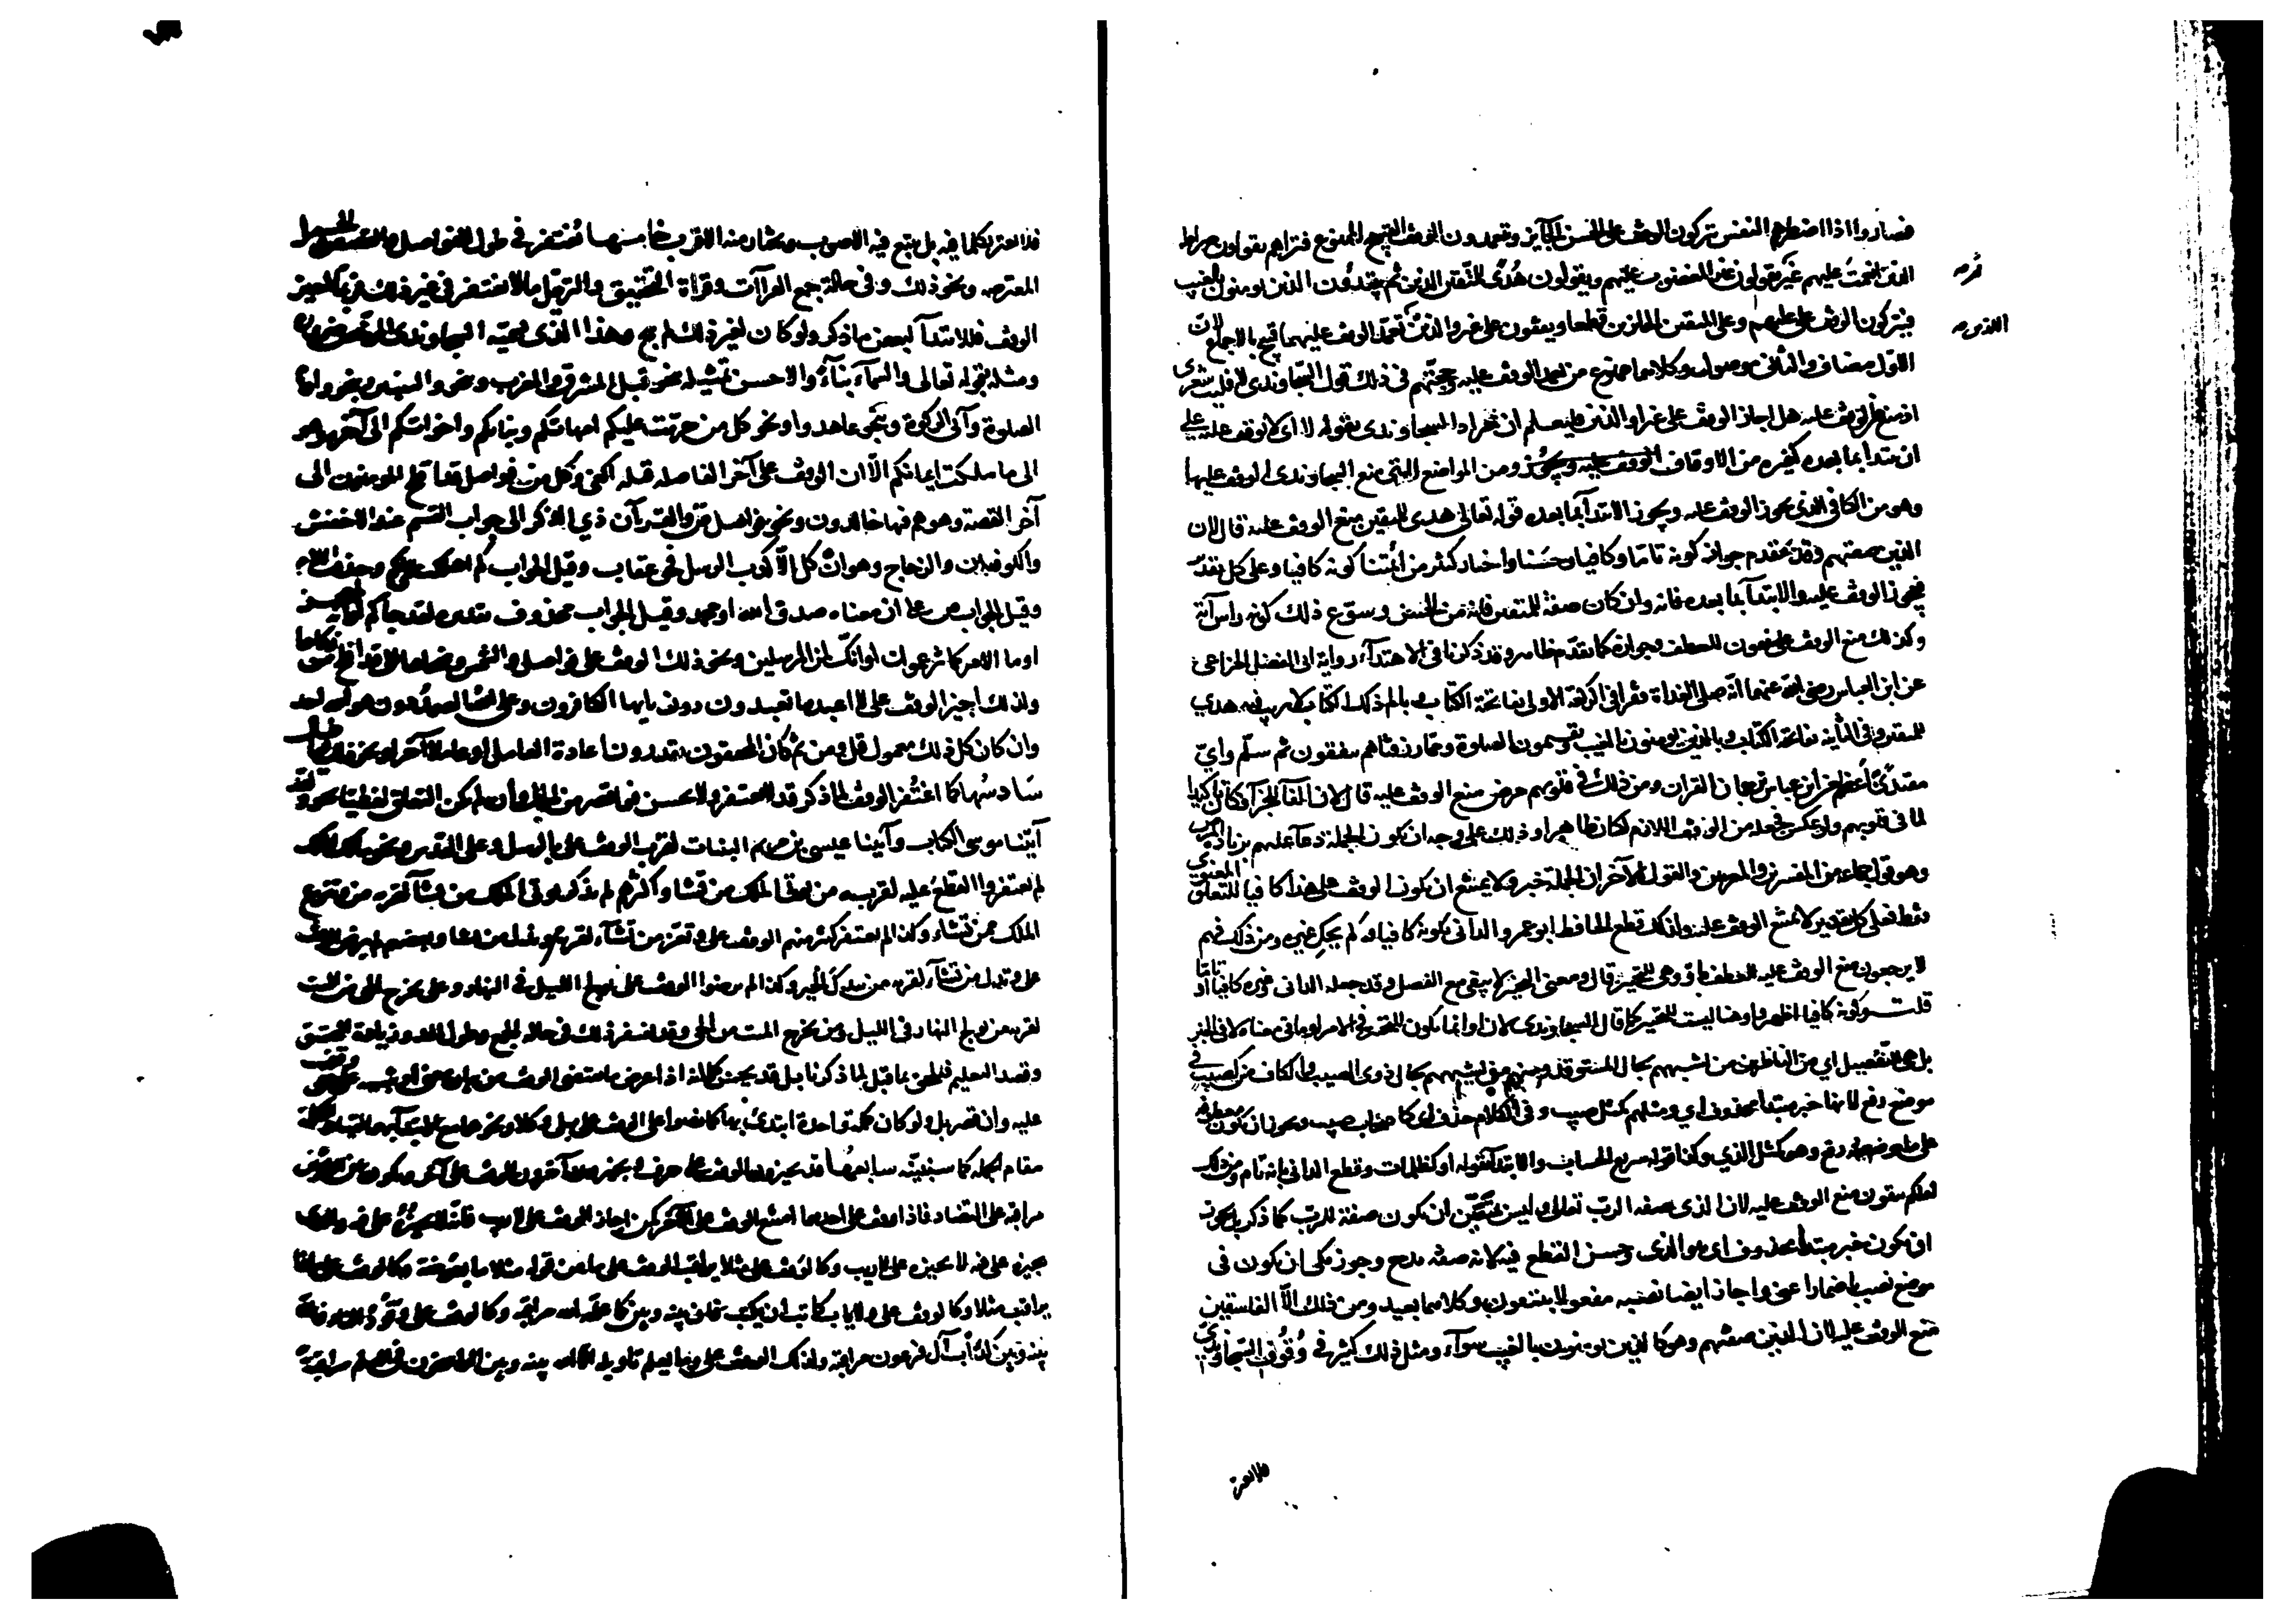 فصاروا اذا اضطرهم النفس يتركون الوقف على الحسن الجايز ويتعمدون الوقف القبيح الممنوع فتراهم يقولون صراط
الذين انعمت عليهم غير ثم يقولون غير المغضوب عليهم ويقولون هدى للمتقين الذين ثم يبتدؤن الذين يومنون بالغيب
فيتركون الوقف على عليهم وعلى المتقين الجائزين قطعا ويقفون على غير والذين تعمد الوقف عليهما قبيح بالاجماع لان
الاول مضاف والثاني موصول وكلاهما ممنوع من تعمد الوقف عليه وحجتهم في ذلك قول السجاوندي لا فليت شعري
اذ منع الوقف عليه هل اجاز الوقف على غير او الذين فليعلم ان مراد السجاوندي بقوله لا اي لا يوقف عليه على
ان يبتدأ بما بعده كغيره من الاوقاف ومن المواضع التي منع السجاوندي الوقف عليها
وهو من الكافي الذي يجوز الوقف عليه ويجوز الابتدآ بما بعده قوله تعالى هدى للمتقين منع الوقف عليه قال لان
الذين صفتهم وقد تقدم جوازه كونه تاما وكافيا وحسنا واختار كثير من ائمتنا كونه كافيا وعلى كل تقدير
فيجوز الوقف عليه والابتدآ بما بعده فانه وان كان صفة للمتقين فانه من الحسن وسوغ ذلك كونه راس آية
وكذلك منع الوقف على ينفقون للعطف وجوازه كما تقدم ظاهر وقد ذكرنا في الاهتدآء رواية ابي الفضل الخزاعي
عن ابن العباس رضي الله عنهما انه صلى الغداة فقرا في الركعة الاولى بفاتحة الكتاب وبالم ذلك الكتاب لا ريب فيه هدى
للمتقين وفي الثانية بفاتحة الكتاب وبالذين يومنون بالغيب ويقيمون الصلوة ومما رزقناهم ينفقون ثم سلم واي
مقتدى اعظم من ابن عباس ترجمان القران ومن ذلك في قلوبهم مرض منع الوقف عليه قال لان الفا للجزآ وكان تاكيدا
لما في قلوبهم ولو عكس فجعله من الوقف اللازم لكان ظاهرا وذلك على وجه ان يكون الجملة دعآ عليهم بزيادة المرض
وهو قول جماعة من المفسرين والمعربين والقول الآخر ان الجملة خبر ولا يمتنع ان يكون الوقف على هذا كافيا للتعلق المعنوي
فقط فعلى كل تقدير لا يمتنع الوقف عليه ولذلك قطع الحافظ ابو عمرو الداني بكونه كافيا ولم يحك غيره ومن ذلك فهم
لا يرجعون منع الوقف عليه للعطف باو وهي للتخيير قال ومعنى التخيير لا يبقى مع الفصل وقد جعله الداني وغيره كافيا او تاما
قلت وكونه كافيا اظهر واو هنا ليست للتخيير كما قال السجاوندي لان او انما تكون للتخيير في الامر او ما في معناه لا في الخبر
بل هي للتفصيل اي من الناظرين من يشبههم بحال المستوقد ومنهم من يشبههم بحال ذوي الصيب والكاف من كصيب في
موضع رفع لانها خبر مبتدا محذوف اي ومثلهم كمثل صيب وفي الكلام حذف اي كاصحاب صيب ويجوز ان يكون معطوفة
على ما موضعه رفع وهو كمثل الذي وكذا قوله سريع الحساب والابتدآ بقوله او كظلمات وقطع الداني بانه تام ومن ذلك
لعلكم تتقون منع الوقف عليه لان الذي صفة الرب تعالى وليس بمتعين ان يكون صفة للرب كما ذكر بل يجوز
ان يكون خبر مبتدا محذوف اي هو الذي وحسن القطع فيه لانه صفة مدح وجوز مكي ان يكون في
موضع نصب باضمار اعني واجاز ايضا نصبه مفعولا بتتقون وكلاهما بعيد ومن ذلك الا الفاسقين
منع الوقف عليه لان الذين صفتهم وهو كالذين يومنون بالغيب سوآء ومثل ذلك كثير في وقوف السجاوندي
فلا تغتر بكلما فيه بل يتبع فيه الاصوب ويختار منه الاقرب خامسها يغتفر في طول الفواصل والقصص والجمل
المعترضه ونحو ذلك وفي حالة جمع القرآات وقراة التحقيق والترتيل ما لا يغتفر في غير ذلك فربما اجيز
الوقف والابتدآ لبعض ما ذكر ولو كان لغير ذلك لم يبح وهذا الذي يسميه السجاوندي المرخص ضرورة
ومثله بقوله تعالى والسمآء بنآء والاحسن تمثيله بنحو قبل المشرق والمغرب وبنحو والنبيين وبنحو واقام
الصلوة وآتى الزكوة وبنحو عاهدوا ونحو كل من حرمت عليكم امهاتكم وبناتكم واخواتكم الى آخره وهو
الى ما ملكت ايمانكم الا ان الوقف على آخر الفاصلة قبله اكفى ونحو كل من فواصل قد افلح المومنون الى
آخر القصة وهو هم فيها خالدون ونحو فواصل ص والقرآن ذي الذكر الى جواب القسم عند الاخفش
والكوفيين والزجاج وهو ان كل الا كذب الرسل فحق عقاب وقيل الجواب كم اهلكنا
وقيل الجواب ص على ان معناه صدق الله او محمد وقيل الجواب محذوف تقديره لقد جاكم
او ما الامر كما تزعمون او انك لمن المرسلين ونحو ذلك الوقف على فواصل والشمس وضحاها الى قد افلح من زكاها
ولذلك اجيز الوقف على لا اعبد ما تعبدون دون يا ايها الكافرون وعلى الله الصمد دون هو الله احد
وان كان كل ذلك معمول قل ومن ثم كان المحققون يقدرون اعادة العامل او عاملا آخر او نحو ذلك
سادسها كما اغتفر الوقف لما ذكر قد لا يغتفر ولا يحسن فيما قصر من الجمل وان لم يكن التعلق لفظيا نحو ولقد
آتينا موسى الكتاب وآتينا عيسى بن مريم البينات لقرب الوقف على بالرسل وعلى القدس ونحو مالك الملك
لم يغتفروا القطع عليه لقربه من توتي الملك من تشا واكثرهم لم يذكر توتي الملك من تشآ لقربه من وتنزع
الملك ممن تشاء وكذا لم يغتفر كثير منهم الوقف على وتعز من تشآء لقربه من وتذل من تشا وبعضهم لم يرض الوقف
على وتذل من تشآء لقربه من بيدك الخير وكذا لم يرضوا الوقف على تولج الليل في النهار وعلى تخرج الحي من الميت
لقربه من تولج النهار في الليل ومن تخرج الميت من الحي وقد يغتفر ذلك في حالة الجمع وطول المد وزيادة التحقيق
وقصد التعليم فيلحق بما قبل لما ذكرنا بل قد يحسن كما انه اذا عرض ما يقتضي الوقف من بيان معنى او تنبيه على خفي وقف
عليه وان قصر بل ولو كان كلمة واحدة ابتدئ بها كما نصوا على الوقف على بلى وكلا ونحوهما مع الابتدآ بهما لقيام الكلمة
مقام الجملة كما سنبينه سابعها قد يجيزون الوقف على حرف ويجيز آخرون الوقف على آخر ويكون بين الوقفين
مراقبة على التضاد فاذا وقف على احدهما امتنع الوقف على الآخر كمن اجاز الوقف على لا ريب فانه لا يجيزه على فيه والذي
يجيزه على فيه لا يجيزه على لا ريب وكالوقف على مثلا يراقب الوقف على ما من قوله مثلا ما بعوضة وكالوقف على ماذا
يراقب مثلا وكالوقف على ولا ياب كاتب ان يكتب فان بينه وبين كما علمه الله مراقبة وكالوقف على وقود النار فان
بينه وبين كداب آل فرعون مراقبة وكذلك الوقف على وما يعلم تاويله الا الله بينه وبين الراسخون في العلم مراقبة